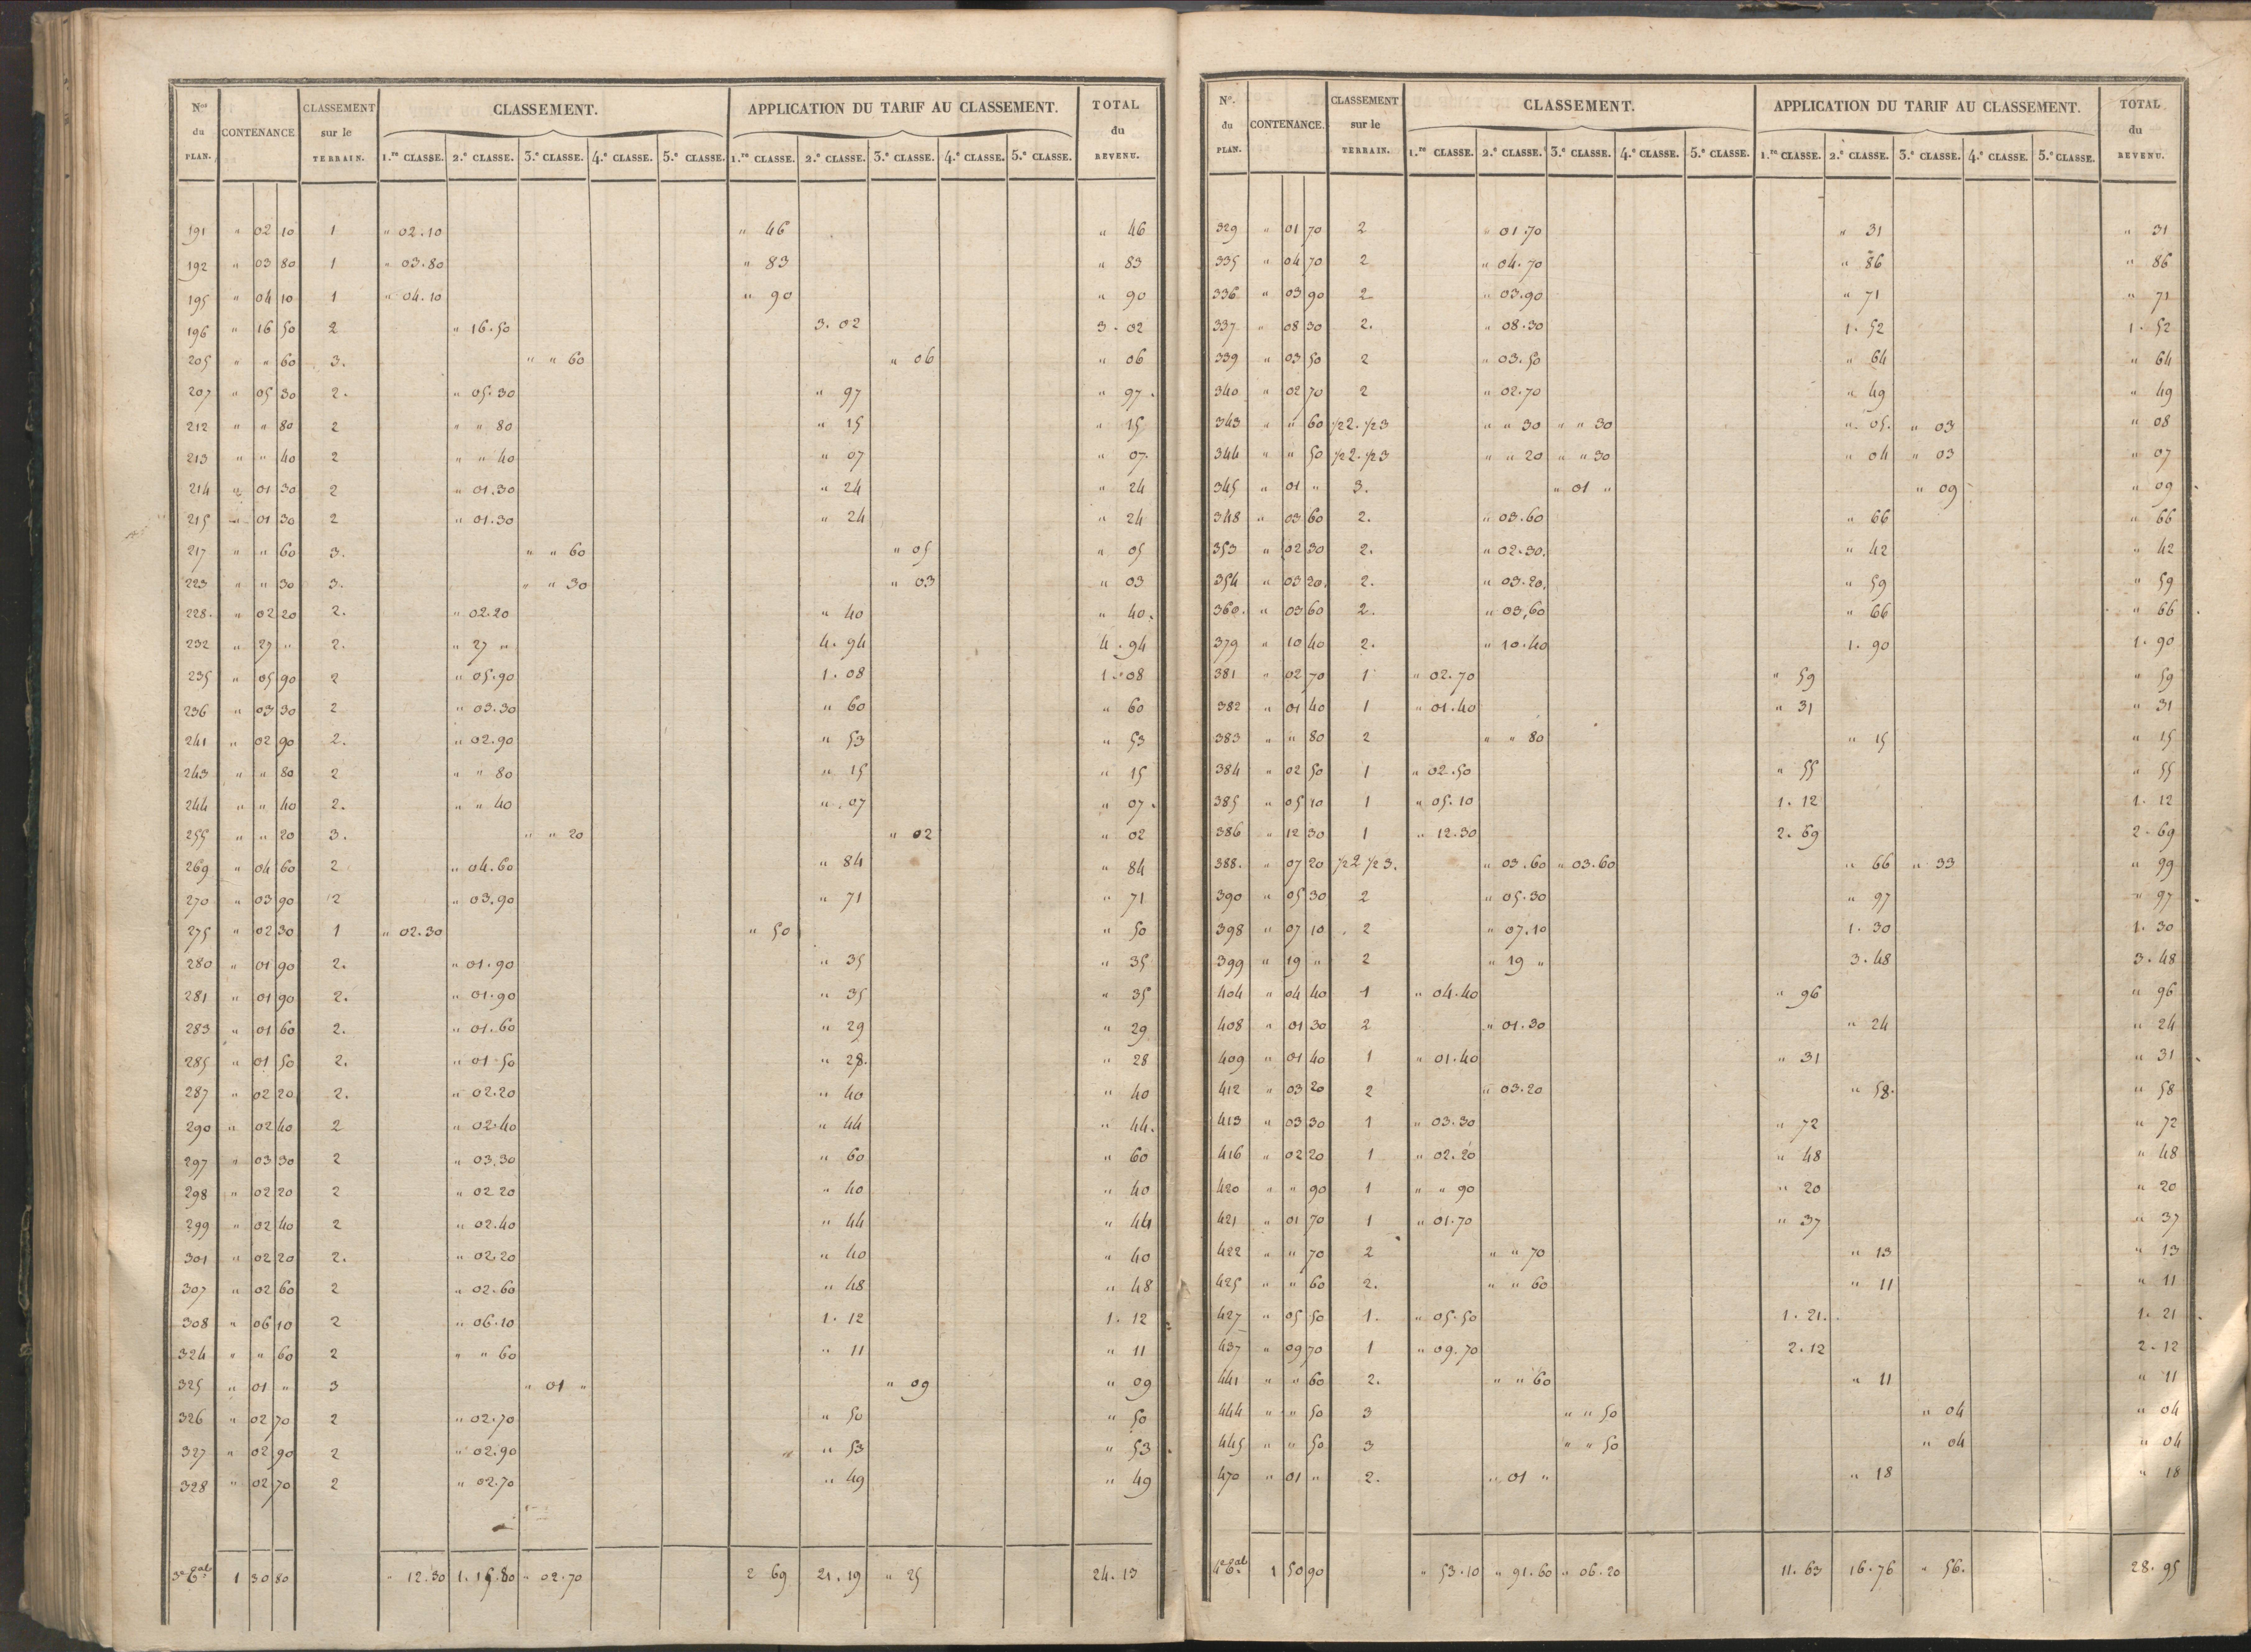 Nos du PLAN. CONTENANCE CLASSEMENT sur le TERRAIN. CLASSEMENT. APPLICATION DU TARIF AU CLASSEMENT. TOTAL du REVENU.
1.re CLASSE. 2.e CLASSE. 3.e CLASSE. 4.e CLASSE. 5.e CLASSE. 1.re CLASSE. 2.e CLASSE. 3.e CLASSE. 4.e CLASSE. 5.e CLASSE.
191 " 02 10 1 " 02.10 " 46 " 46
192 " 03 80 1 " 03.80 " 83 " 83
195 " 04 10 1 " 04.10 " 90 " 90
196 " 16 50 2 " 16.50 3.02 3.02
205 " " 60 3. " " 60 " 06 " 06
207 " 05 30 2. " 05.30 " 97 " 97.
212 " " 80 2 " " 80 " 15 " 15
213 " " 40 2 " " 40 " 07 " 07.
214 " 01 30 2 " 01.30 " 24 " 24
215 " 01 30 2 " 01.30 " 24 " 24
217 " " 60 3. " " 60 " 05 " 05
223 " " 30 3. " " 30 " 03 " 03
228. " 02 20 2. " 02.20 " 40 " 40.
232 " 27 " 2. " 27 " 4.94 4.94
235 " 05 90 2 " 05.90 1.08 1.08
236 " 03 30 2 " 03.30 " 60 " 60
241 " 02 90 2. " 02.90 " 53 " 53
243 " " 80 2 " " 80 " 15 " 15
244 " " 40 2. " " 40 " 07 " 07.
255 " " 20 3. " " 20 " 02 " 02
269 " 04 60 2 " 04.60 " 84 " 84
270 " 03 90 2 " 03.90 " 71 " 71
275 " 02 30 1 " 02.30 " 50 " 50
280 " 01 90 2. " 01.90 " 35 " 35
281 " 01 90 2. " 01.90 " 35 " 35
283 " 01 60 2. " 01.60 " 29 " 29
285 " 01 50 2. " 01.50 " 28. " 28
287 " 02 20 2. " 02.20 " 40 " 40
290 " 02 40 2 " 02.40 " 44 " 44.
297 " 03 30 2 " 03.30 " 60 " 60
298 " 02 20 2 " 02 20 " 40 " 40
299 " 02 40 2 " 02.40 " 44 " 44
301 " 02 20 2. " 02.20 " 40 " 40
307 " 02 60 2 " 02.60 " 48 " 48
308 " 06 10 2 " 06.10 1.12 1.12
324 " " 60 2 " " 60 " 11 " 11
325 " 01 " 3 " 01 " " 09 " 09
326 " 02 70 2 " 02.70 " 50 " 50
327 " 02 90 2 " 02.90 " 53 " 53
328 " 02 70 2 " 02.70 " 49 " 49
1 30 80 " 12.30 1.15.80 " 02.70 2 69 21.19 " 25 24.13
No. du PLAN. CONTENANCE. CLASSEMENT sur le TERRAIN. CLASSEMENT. APPLICATION DU TARIF AU CLASSEMENT. TOTAL du REVENU.
1.re CLASSE. 2.e CLASSE. 3.e CLASSE. 4.e CLASSE. 5.e CLASSE. 1.re CLASSE. 2.e CLASSE. 3.e CLASSE. 4.e CLASSE. 5.e CLASSE.
329 " 01 70 2 " 01.70 " 31 " 31
335 " 04 70 2 " 04.70 " 86 " 86
336 " 03 90 2 " 03.90 " 71 " 71
337 " 08 30 2. " 08.30 1.52 1.52
339 " 03 50 2 " 03.50 " 64 " 64
340 " 02 70 2 " 02.70 " 49 " 49
343 " " 60 1/2 2. 1/2 3 " " 30 " " 30 " 05. " 03 " 08
344 " " 50 1/2 2. 1/2 3 " " 20 " " 30 " 04 " 03 " 07
345 " 01 " 3. " 01 " " 09 " 09
348 " 03 60 2. " 03.60 " 66 " 66
353 " 02 30 2. " 02.30. " 42 " 42
354 " 03 20. 2. " 03.20. " 59 " 59
360. " 03 60 2. " 03,60 " 66 " 66
379 " 10 40 2. " 10.40 1.90 1.90
381 " 02 70 1 " 02.70 " 59 " 59
382 " 01 40 1 " 01.40 " 31 " 31
383 " " 80 2 " " 80 " 15 " 15
384 " 02 50 1 " 02.50 " 55 " 55
385 " 05 10 1 " 05.10 1.12 1.12
386 " 12 30 1 " 12.30 2.69 2.69
388. " 07 20 1/2 2 1/2 3. " 03.60 " 03.60 " 66 " 33 " 99
390 " 05 30 2 " 05.30 " 97 " 97
398 " 07 10 2 " 07.10 1.30 1.30
399 " 19 " 2 " 19 " 3.48 3.48
404 " 04 40 1 " 04.40 " 96 " 96
408 " 01 30 2 " 01.30 " 24 " 24
409 " 01 40 1 " 01.40 " 31 " 31
412 " 03 20 2 " 03.20 " 58. " 58
413 " 03 30 1 " 03.30 " 72 " 72
416 " 02 20 1 " 02.20 " 48 " 48
420 " " 90 1 " " 90 " 20 " 20
421 " 01 70 1 " 01.70 " 37 " 37
422 " " 70 2 " " 70 " 13 " 13
425 " " 60 2. " " 60 " 11 " 11
427 " 05 50 1. " 05.50 1.21. 1.21
437 " 09 70 1 " 09.70 2.12 2.12
441 " " 60 2. " " 60 " 11 " 11
444 " " 50 3 " " 50 " 04 " 04
445 " " 50 3 " " 50 " 04 " 04
470 " 01 " 2. " 01 " " 18 " 18
1 50 90 " 53.10 " 91.60 " 06.20 11.63 16.76 " 56. 28.95